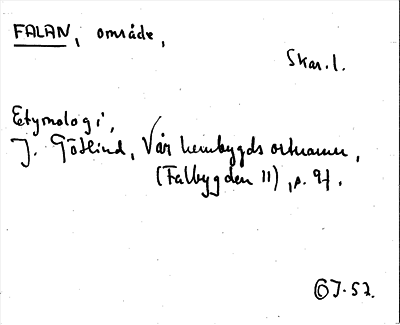 FALAN, område,
Skar.l.
Etymologi,
J. Götlind, Vår hembygds ortnamn,
(Falbygden 11), s. 9f.
GJ.57.